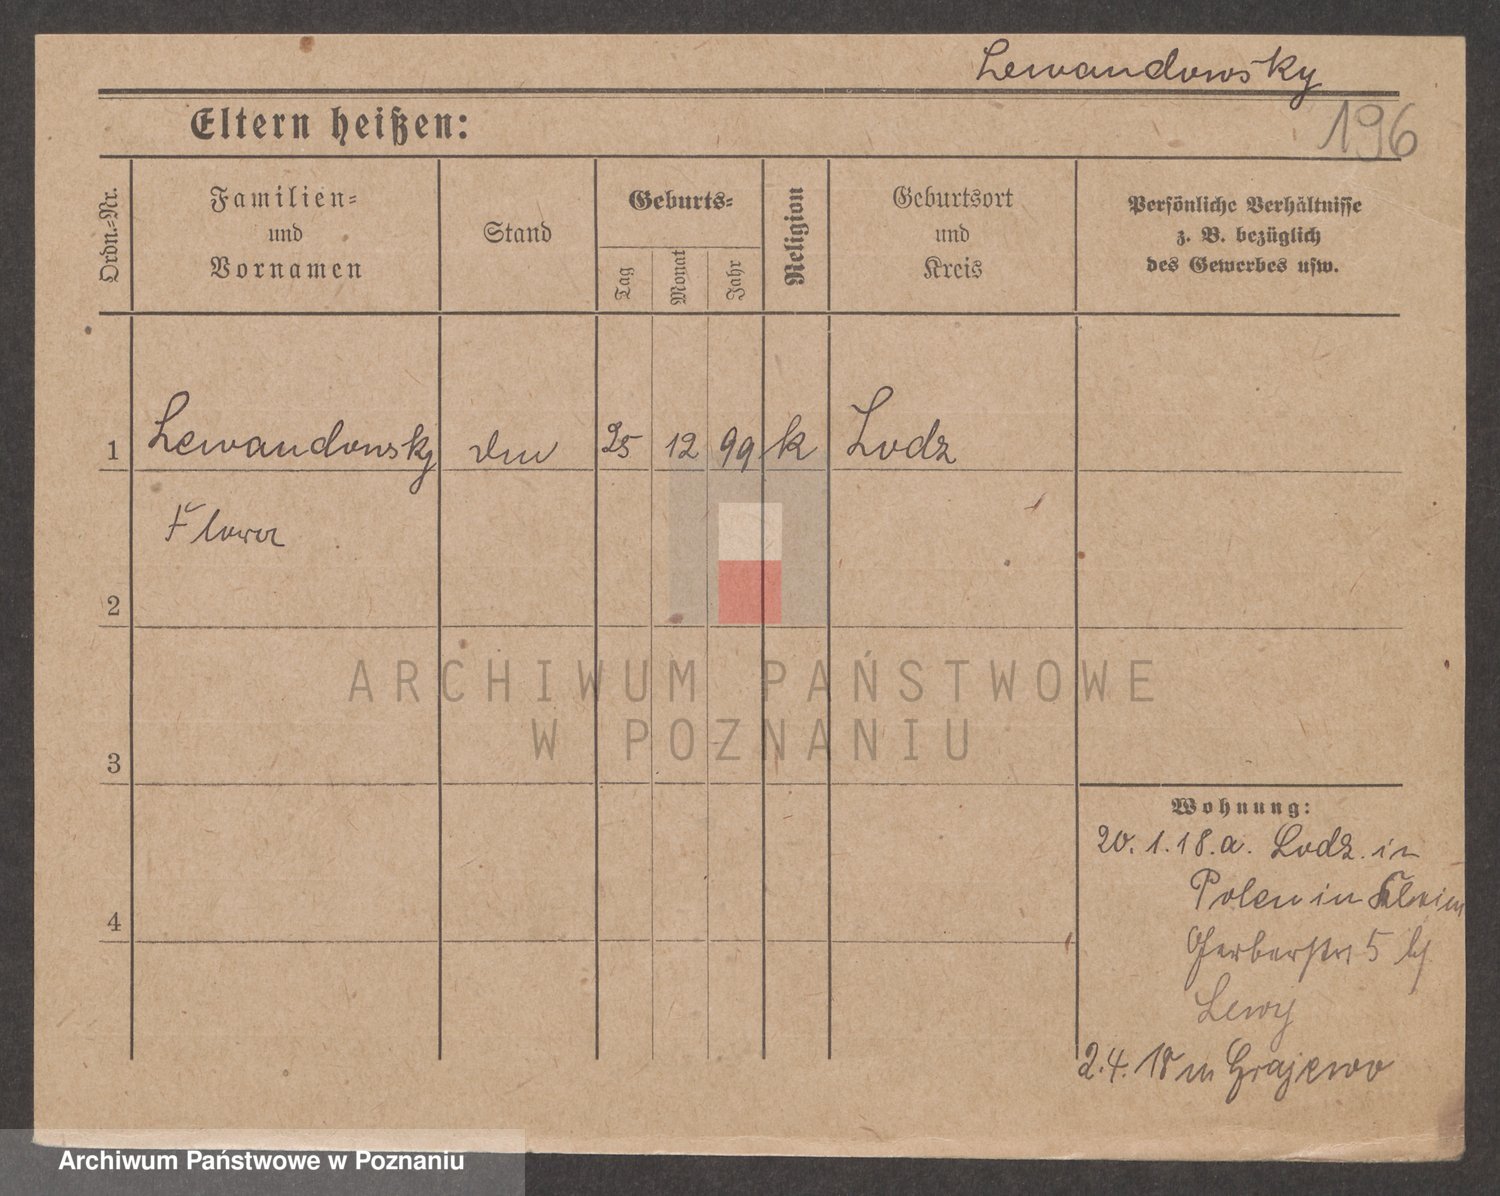 Lewandowsky
196
Eltern heißen:
Ordn.-Nr.
Familien-
und
Vornamen
Stand
Geburts-
Tag
Monat
Jahr
Religion
Geburtsort
und
Kreis
Persönliche Verhältnisse
z. B. bezüglich
des Gewerbes usw.
1 Lewandowsky 25 12 99 k Lodz
Flora
2
3
4
Wohnung:
20.1.18.a. Lodz in
Polen in
Gerberstr 5 bf
Lewy
2.4.18 n Grajewo
ARCHIWUM PAŃSTWOWE
W POZNANIU
Archiwum Państwowe w Poznaniu